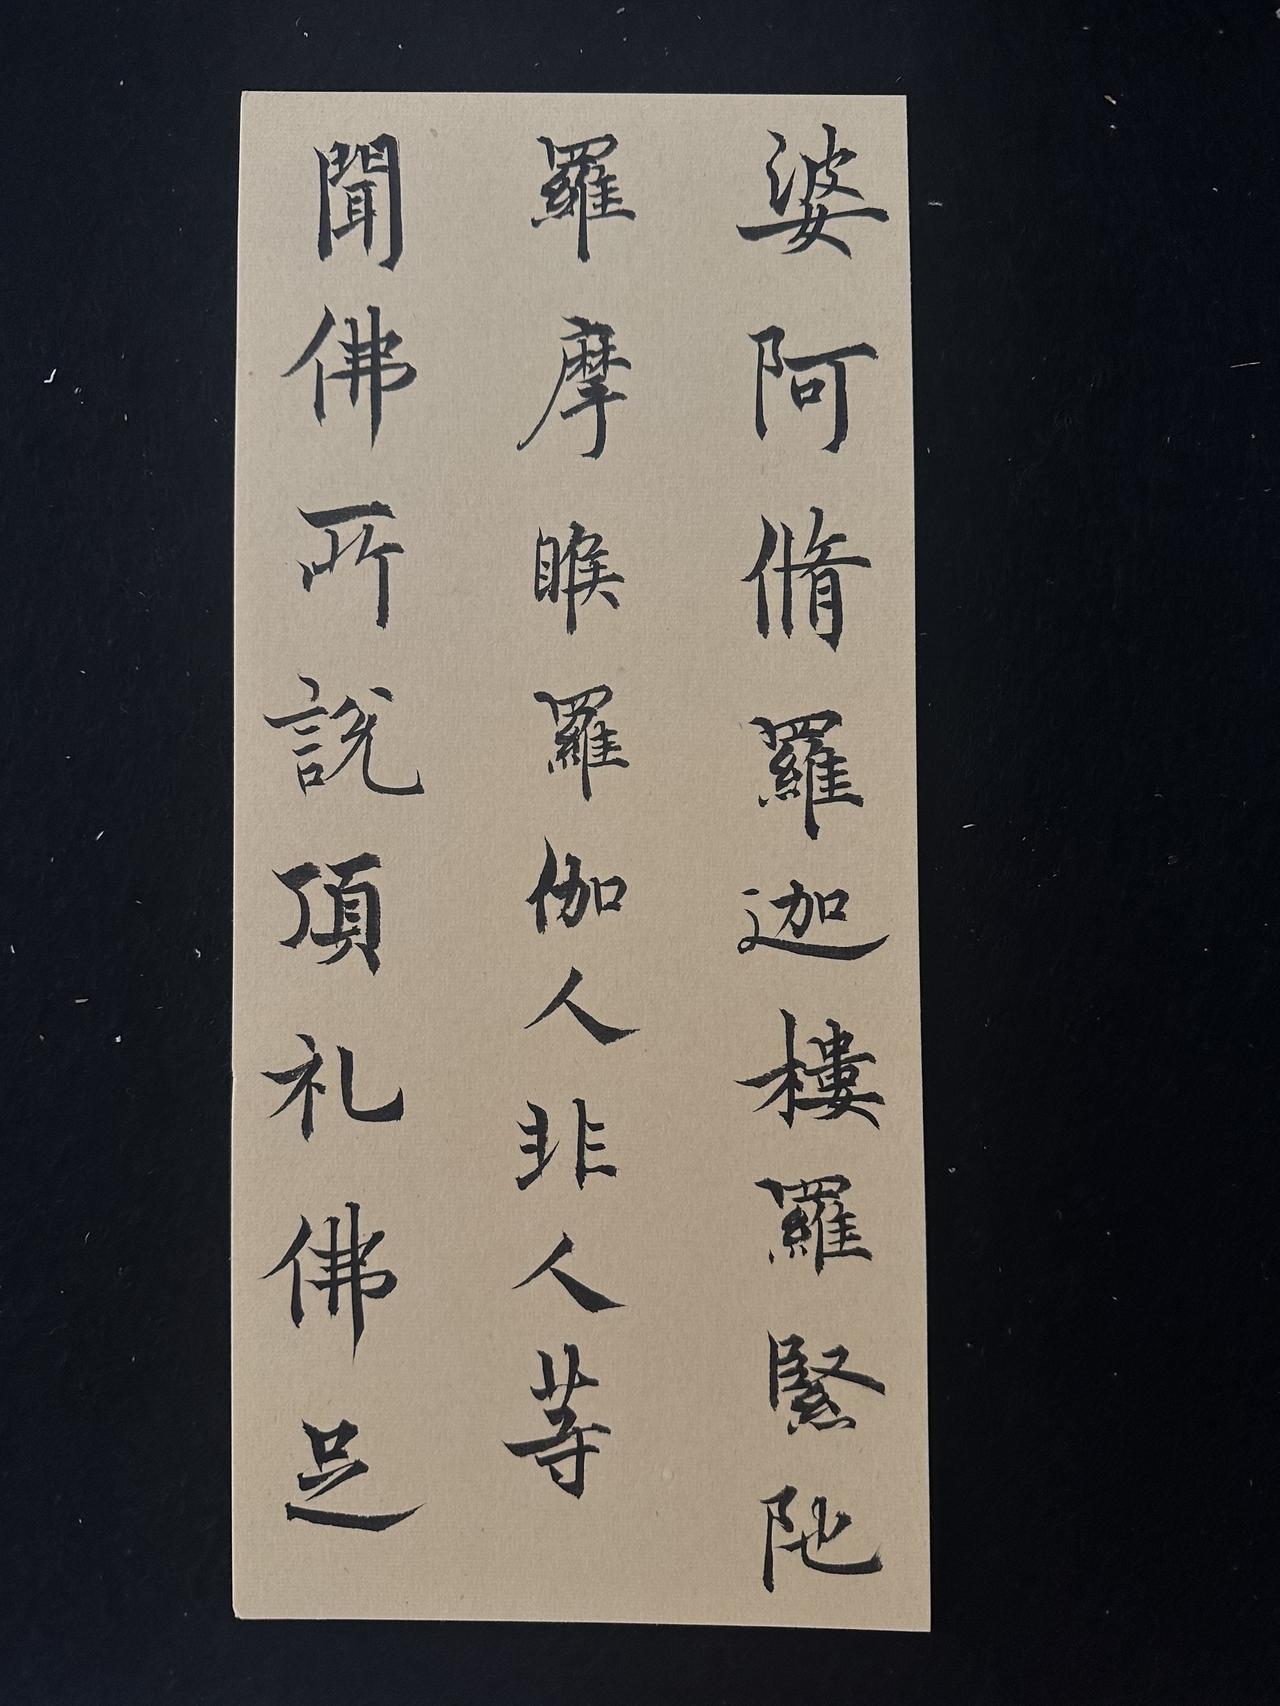 婆阿脩羅迦樓羅緊陁
羅摩睺羅伽人非人等
聞佛所說頂礼佛足